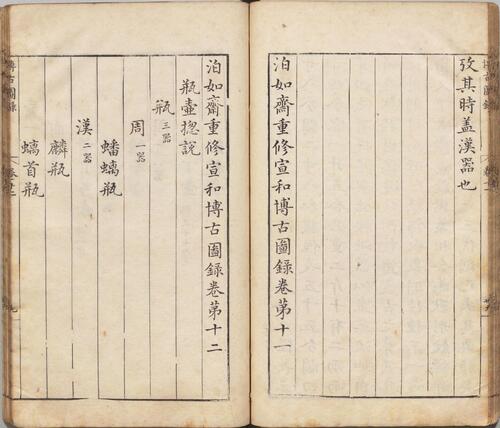 攷其時蓋漢器也
泊如齋重修宣和博古圖錄卷第十一
泊如齋重修宣和博古圖錄卷第十二
瓶壷揔說
瓶三器
周一器
蟠螭瓶
漢二器
麟瓶
螭首瓶
博古圖錄
卷十二